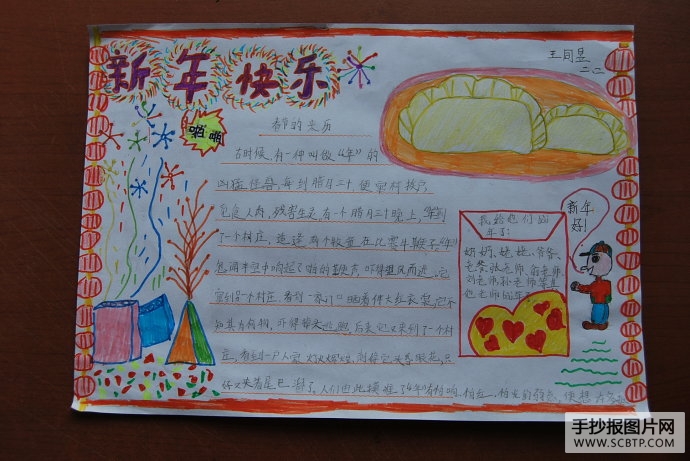 新年快乐
王同昱
二、二
春节的来历
古时候,有一种叫做“年”的
凶猛怪兽,每到腊月三十,便窜村挨户,
觅食人肉,残害生灵。有一个腊月三十晚上,“年”到
了一个村庄,适逢两个牧童在比赛牛鞭子。“年”
忽闻半空中响起了啪啪的鞭声,吓得望风而逃。它
窜到另一个村庄,看到一家门口晒着件大红衣裳,它不
知其为何物,吓得掉头逃跑。后来它又来到了一个村
庄,看到一户人家灯火辉煌,刺得它头昏眼花,只
好又夹着尾巴溜了。人们由此摸准了“年”有怕响,怕红,怕光的弱点,便想
我给他们拜
年了!
奶奶、姥姥、爷爷、
老爷、张老师、
刘老师、孙老师
他老师
新年
好!
手抄报图片网
WWW.SCBTP.COM